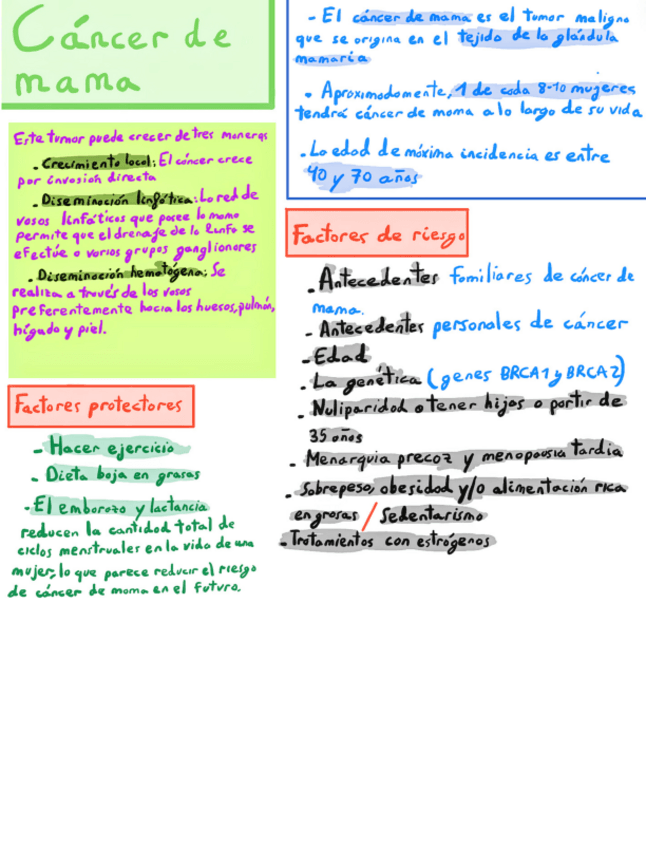 Cáncer de
mama
- El cáncer de mama es el tumor maligno
que se origina en el tejido de la glándula
mamaria
• Aproximadamente, 1 de cada 8-10 mujeres
tendrá cáncer de mama a lo largo de su vida
. La edad de máxima incidencia es entre
40 y 70 años
Este tumor puede crecer de tres maneras
. Crecimiento local: El cáncer crece
por invasión directa
. Diseminación linfática: La red de
vasos linfáticos que posee la mama
permite que el drenaje de la linfa se
efectúe a varios grupos ganglionares
. Diseminación hematógena: Se
realiza a través de los vasos
preferentemente hacia los huesos, pulmón,
hígado y piel.
Factores protectores
- Hacer ejercicio
. Dieta baja en grasas
- El embarazo y lactancia
reducen la cantidad total de
ciclos menstruales en la vida de una
mujer, lo que parece reducir el riesgo
de cáncer de mama en el futuro.
Factores de riesgo
. Antecedentes familiares de cáncer de
mama.
- Antecedentes personales de cáncer
- Edad
. La genética (genes BRCA1 y BRCA2)
- Nuliparidad o tener hijos a partir de
35 años
- Menarquia precoz y menopausia tardía
. Sobrepeso, obesidad y/o alimentación rica
en grasas / Sedentarismo
- Tratamientos con estrógenos